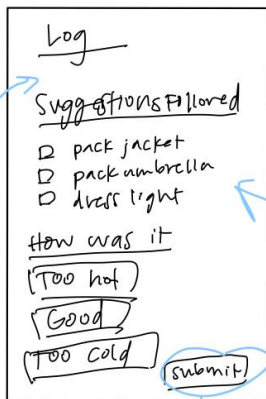 Log
Suggestions Followed
pack jacket
pack umbrella
dress light
How was it
Too hot
Good
Too cold
submit